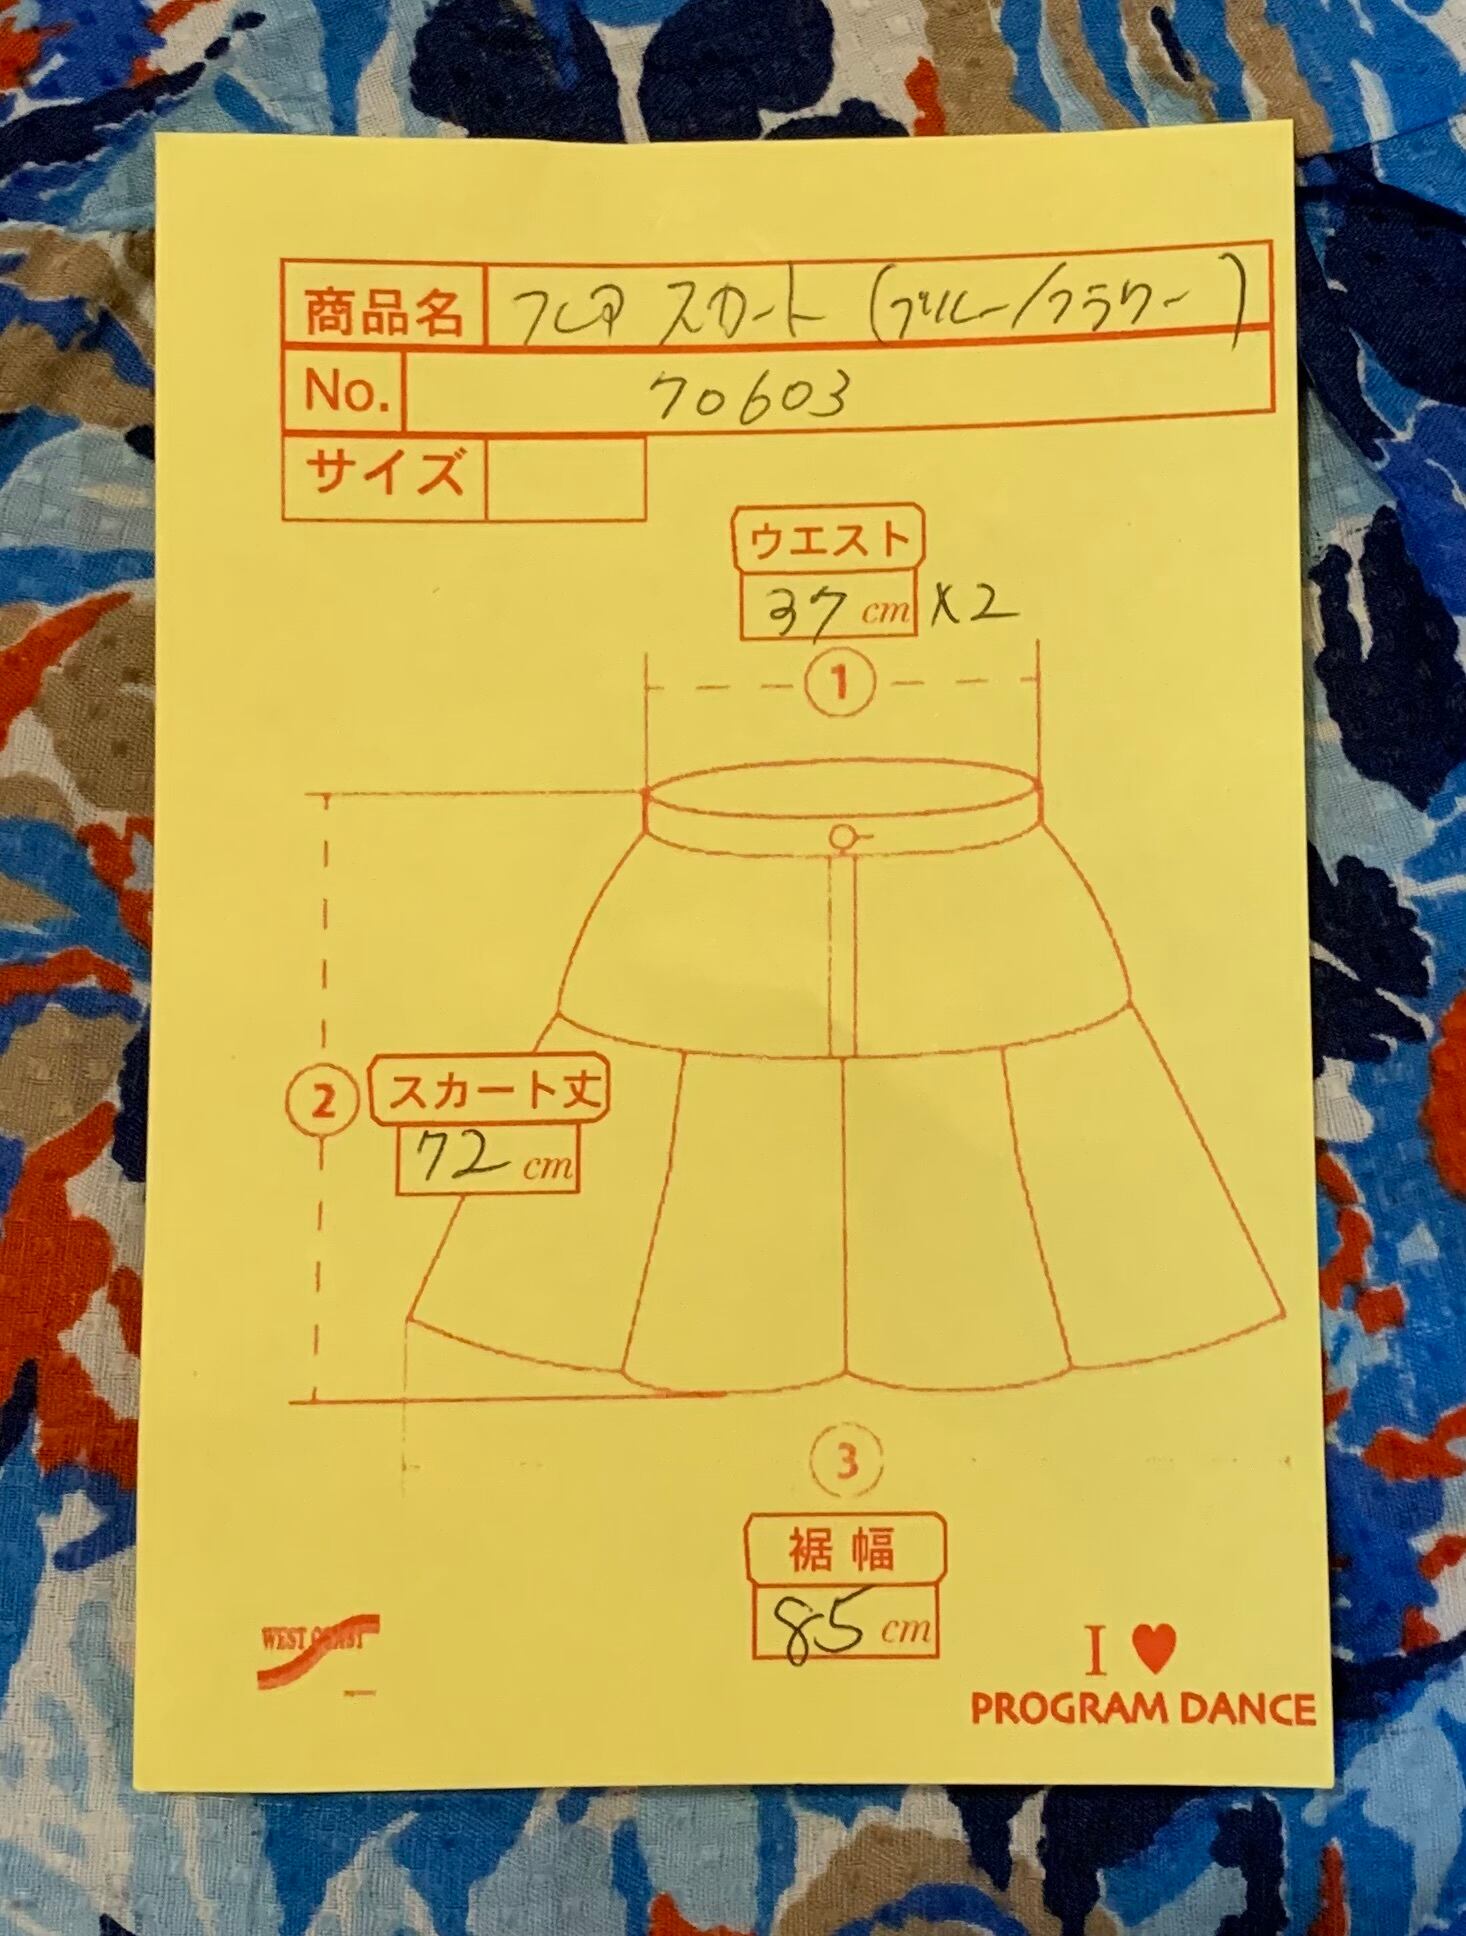 商品名 フレア スカート (ブルー/フラワー)
No. 70603
サイズ
ウエスト
37 cm ×2
1
2 スカート丈
72 cm
3
裾幅
85 cm
WEST COAST
I ♥
PROGRAM DANCE